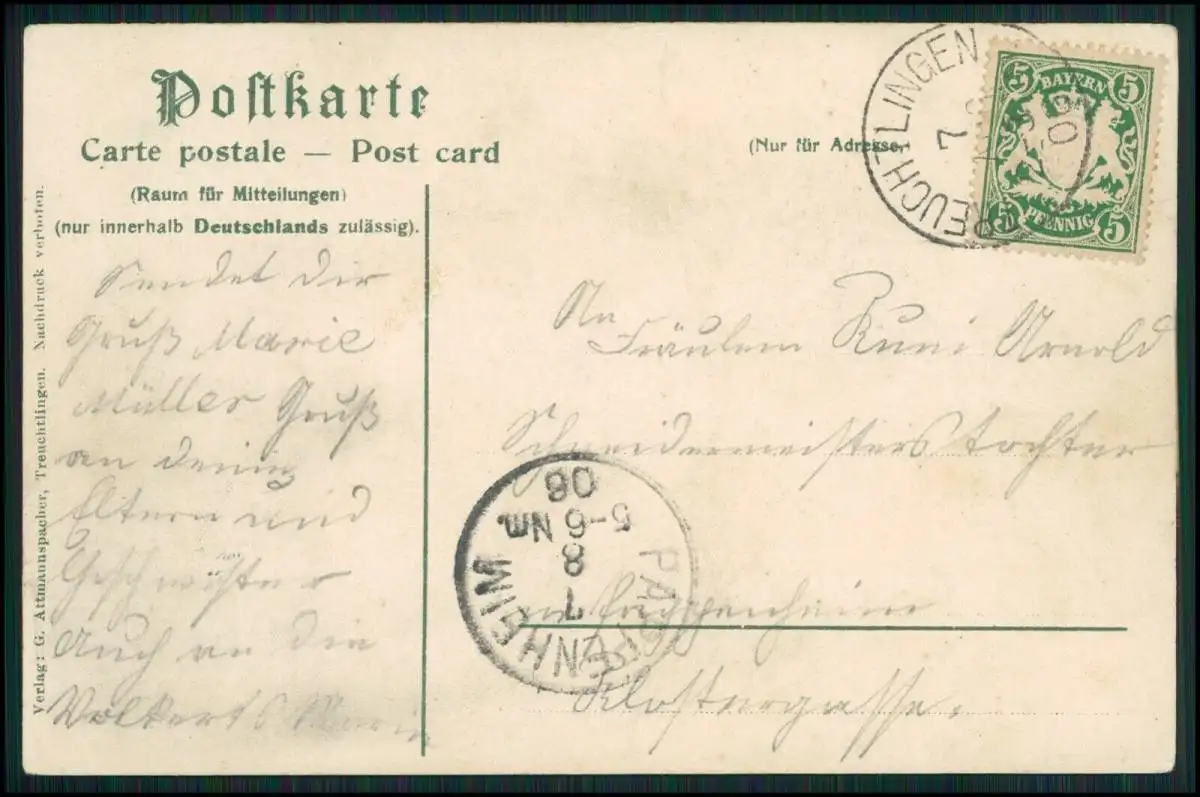 Postkarte
Carte postale — Post card
(Raum für Mitteilungen)
(nur innerhalb Deutschlands zulässig).
(Nur für Adresse.
Verlag: G. Attmannspacher, Treuchtlingen. Nachdruck verboten.
TREUCHTLINGEN
7
5 5
BAYERN
PFENNIG
5 5
Sendet dir
Gruß Marie
Müller Gruß
an deine
Eltern und
Geschwister
Auch an die
Volkerts Marie
An
Fräulein Runi Arnold
Schneidermeisterstochter
in Pappenheim
Klostergasse.
PAPPENHEIM
7
8
5-6 Nm.
06